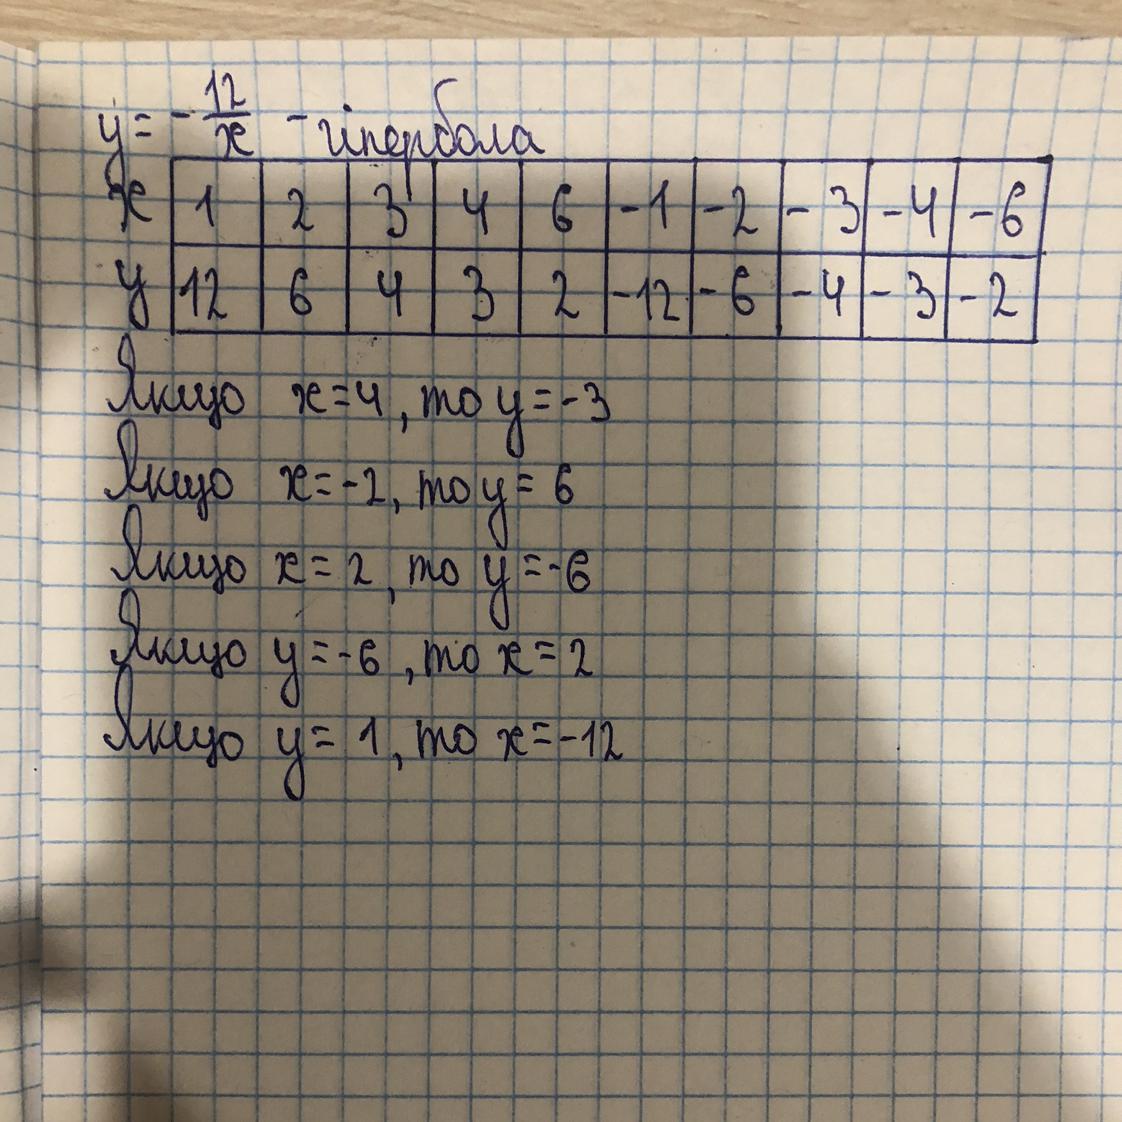 y = - 12/x - гіпербола
x 1 2 3 4 6 -1 -2 -3 -4 -6
y 12 6 4 3 2 -12 -6 -4 -3 -2
Якщо x=4, то y=-3
Якщо x=-2, то y=6
Якщо x=2, то y=-6
Якщо y=-6, то x=2
Якщо y=1, то x=-12